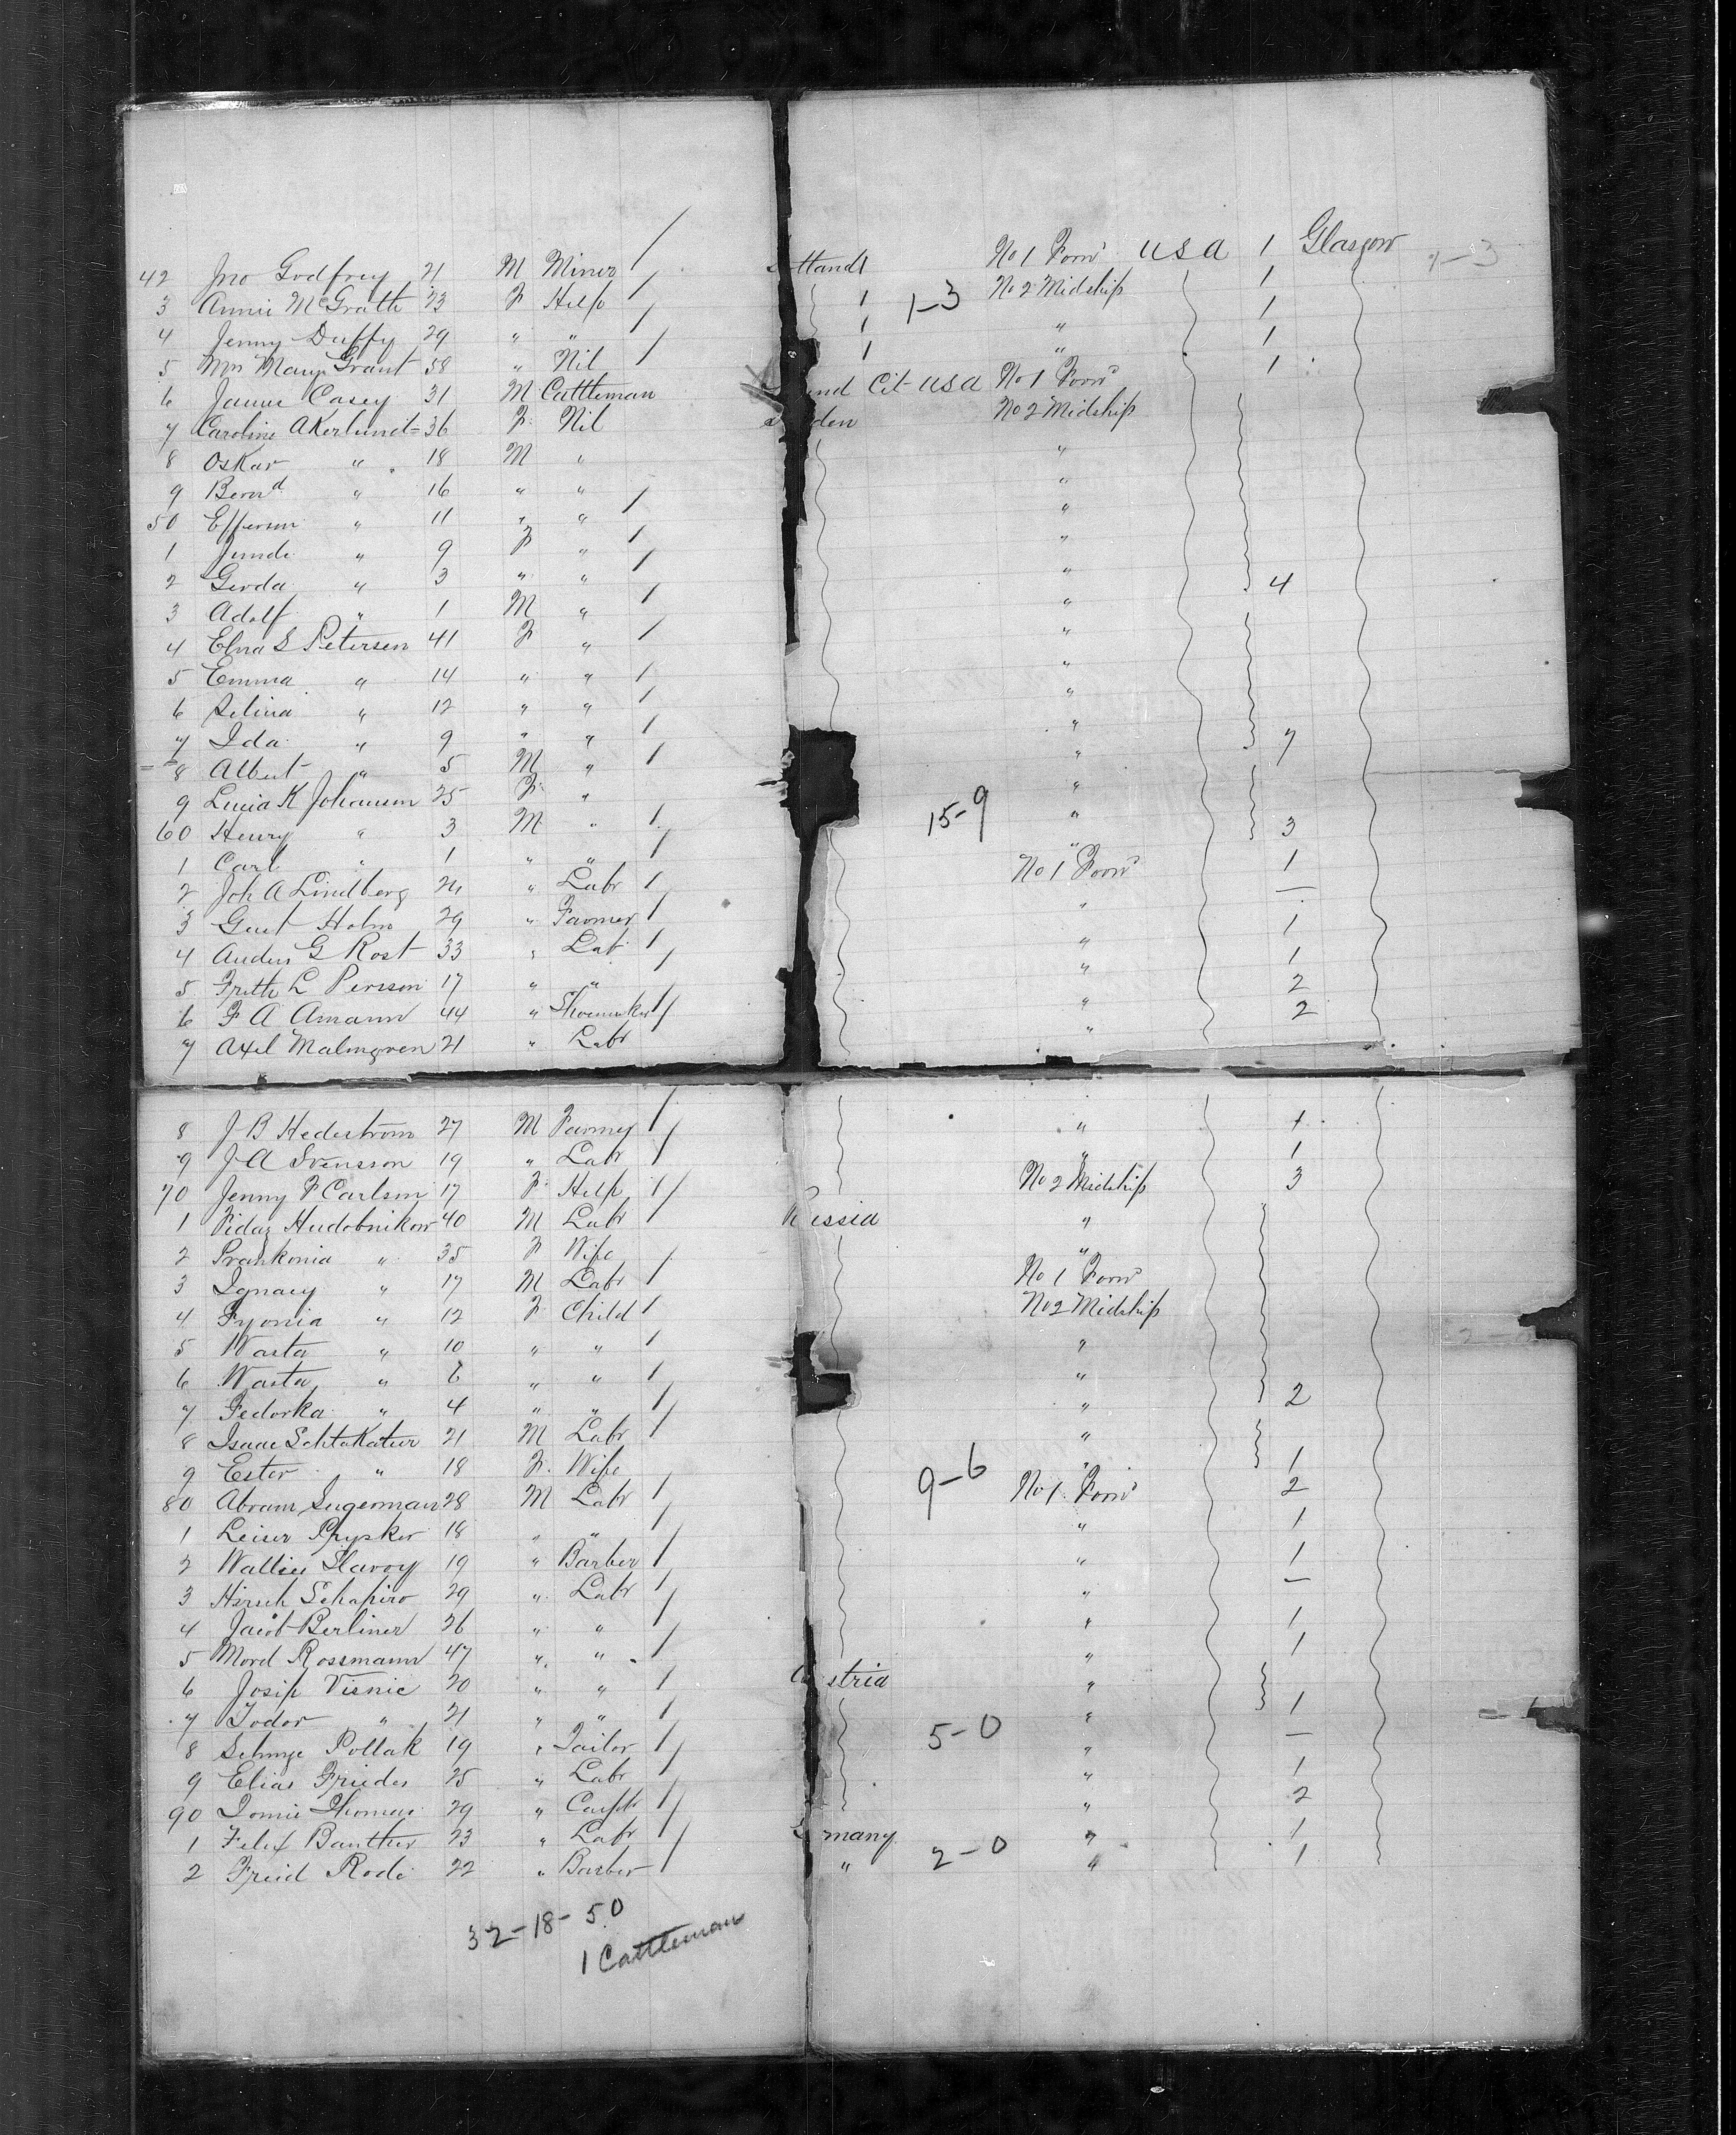 42 Jno Godfrey 21 M Miner / Scotland 1 No 1 Forwd USA 1 Glasgow 1-3
3 Annie McGrath 23 F Help / 1 1-3 No 2 Midship 1
4 Jenny Duffy 29 " " / 1 " 1
5 Mrs Mary Grant 58 " Nil / 1 " 1
6 James Casey 31 M Cattleman Cit USA No 1 Forwd 1
7 Caroline Akerlund 36 F Nil No 2 Midship
8 Oskar " 18 M " "
9 Bernd " 16 " " "
50 " 11 " " / "
1 " 9 F " / "
2 Gerda " 3 " " / " 4
3 Adolf " 1 M " / "
4 Elna S Petersen 41 F " / "
5 Emma " 14 " " / "
6 Selina " 12 " " / "
7 Ida " 9 " " / " 7
8 Albert " 5 M " / "
9 Lucia K Johansson 25 F " "
60 Henry " 3 M " / 15-9 " 3
1 Carl " 1 " " / " 1
2 Joh A Lindberg 24 " Labr / No 1 Forwd —
3 Gust Holm 29 " Farmer / " 1
4 Anders G Rost 33 " Lab / " 1
5 L Persson 17 " " / " 2
6 F A Amann 44 " Shoemaker / " 2
7 Axel Malmgren 21 " Labr / "
8 J B Hedestrom 27 M Farmer / " 1
9 J A Svensson 19 " Labr / " 1
70 Jenny F Carlson 17 F Help / No 2 Midship 3
1 Hudobnikow 40 M Labr / Russia "
2 Praskonia " 35 F Wife "
3 Ignacy " 17 M Labr / No 1 Forwd
4 " 12 F Child / No 2 Midship
5 Wasta " 10 " " / "
6 Wasta " 6 " " / "
7 Fedorka " 4 " " / " 2
8 Isaac 21 M Labr / "
9 Ester " 18 F Wife " 1
80 Abram Sugerman 28 M Labr / 9-6 No 1 Forwd 2
1 Leiser Prysker 18 " " / " 1
2 19 " Barber / " 1
3 Hirsch Schapiro 29 " Labr / " —
4 Jacob Berliner 26 " " / " 1
5 Mord Rossmann 47 " " / " 1
6 Josip Visnic 20 " " / Austria "
7 Todor " 21 " " / " 1
8 Pollak 19 " Tailor / 5-0 " —
9 Elias Frieder 25 " Labr / " 1
90 29 " Carptr / " 2
1 Felix 23 " Labr / Germany " 1
2 Rode 22 " Barber / " 2-0 " 1
32-18-50
1 Cattleman